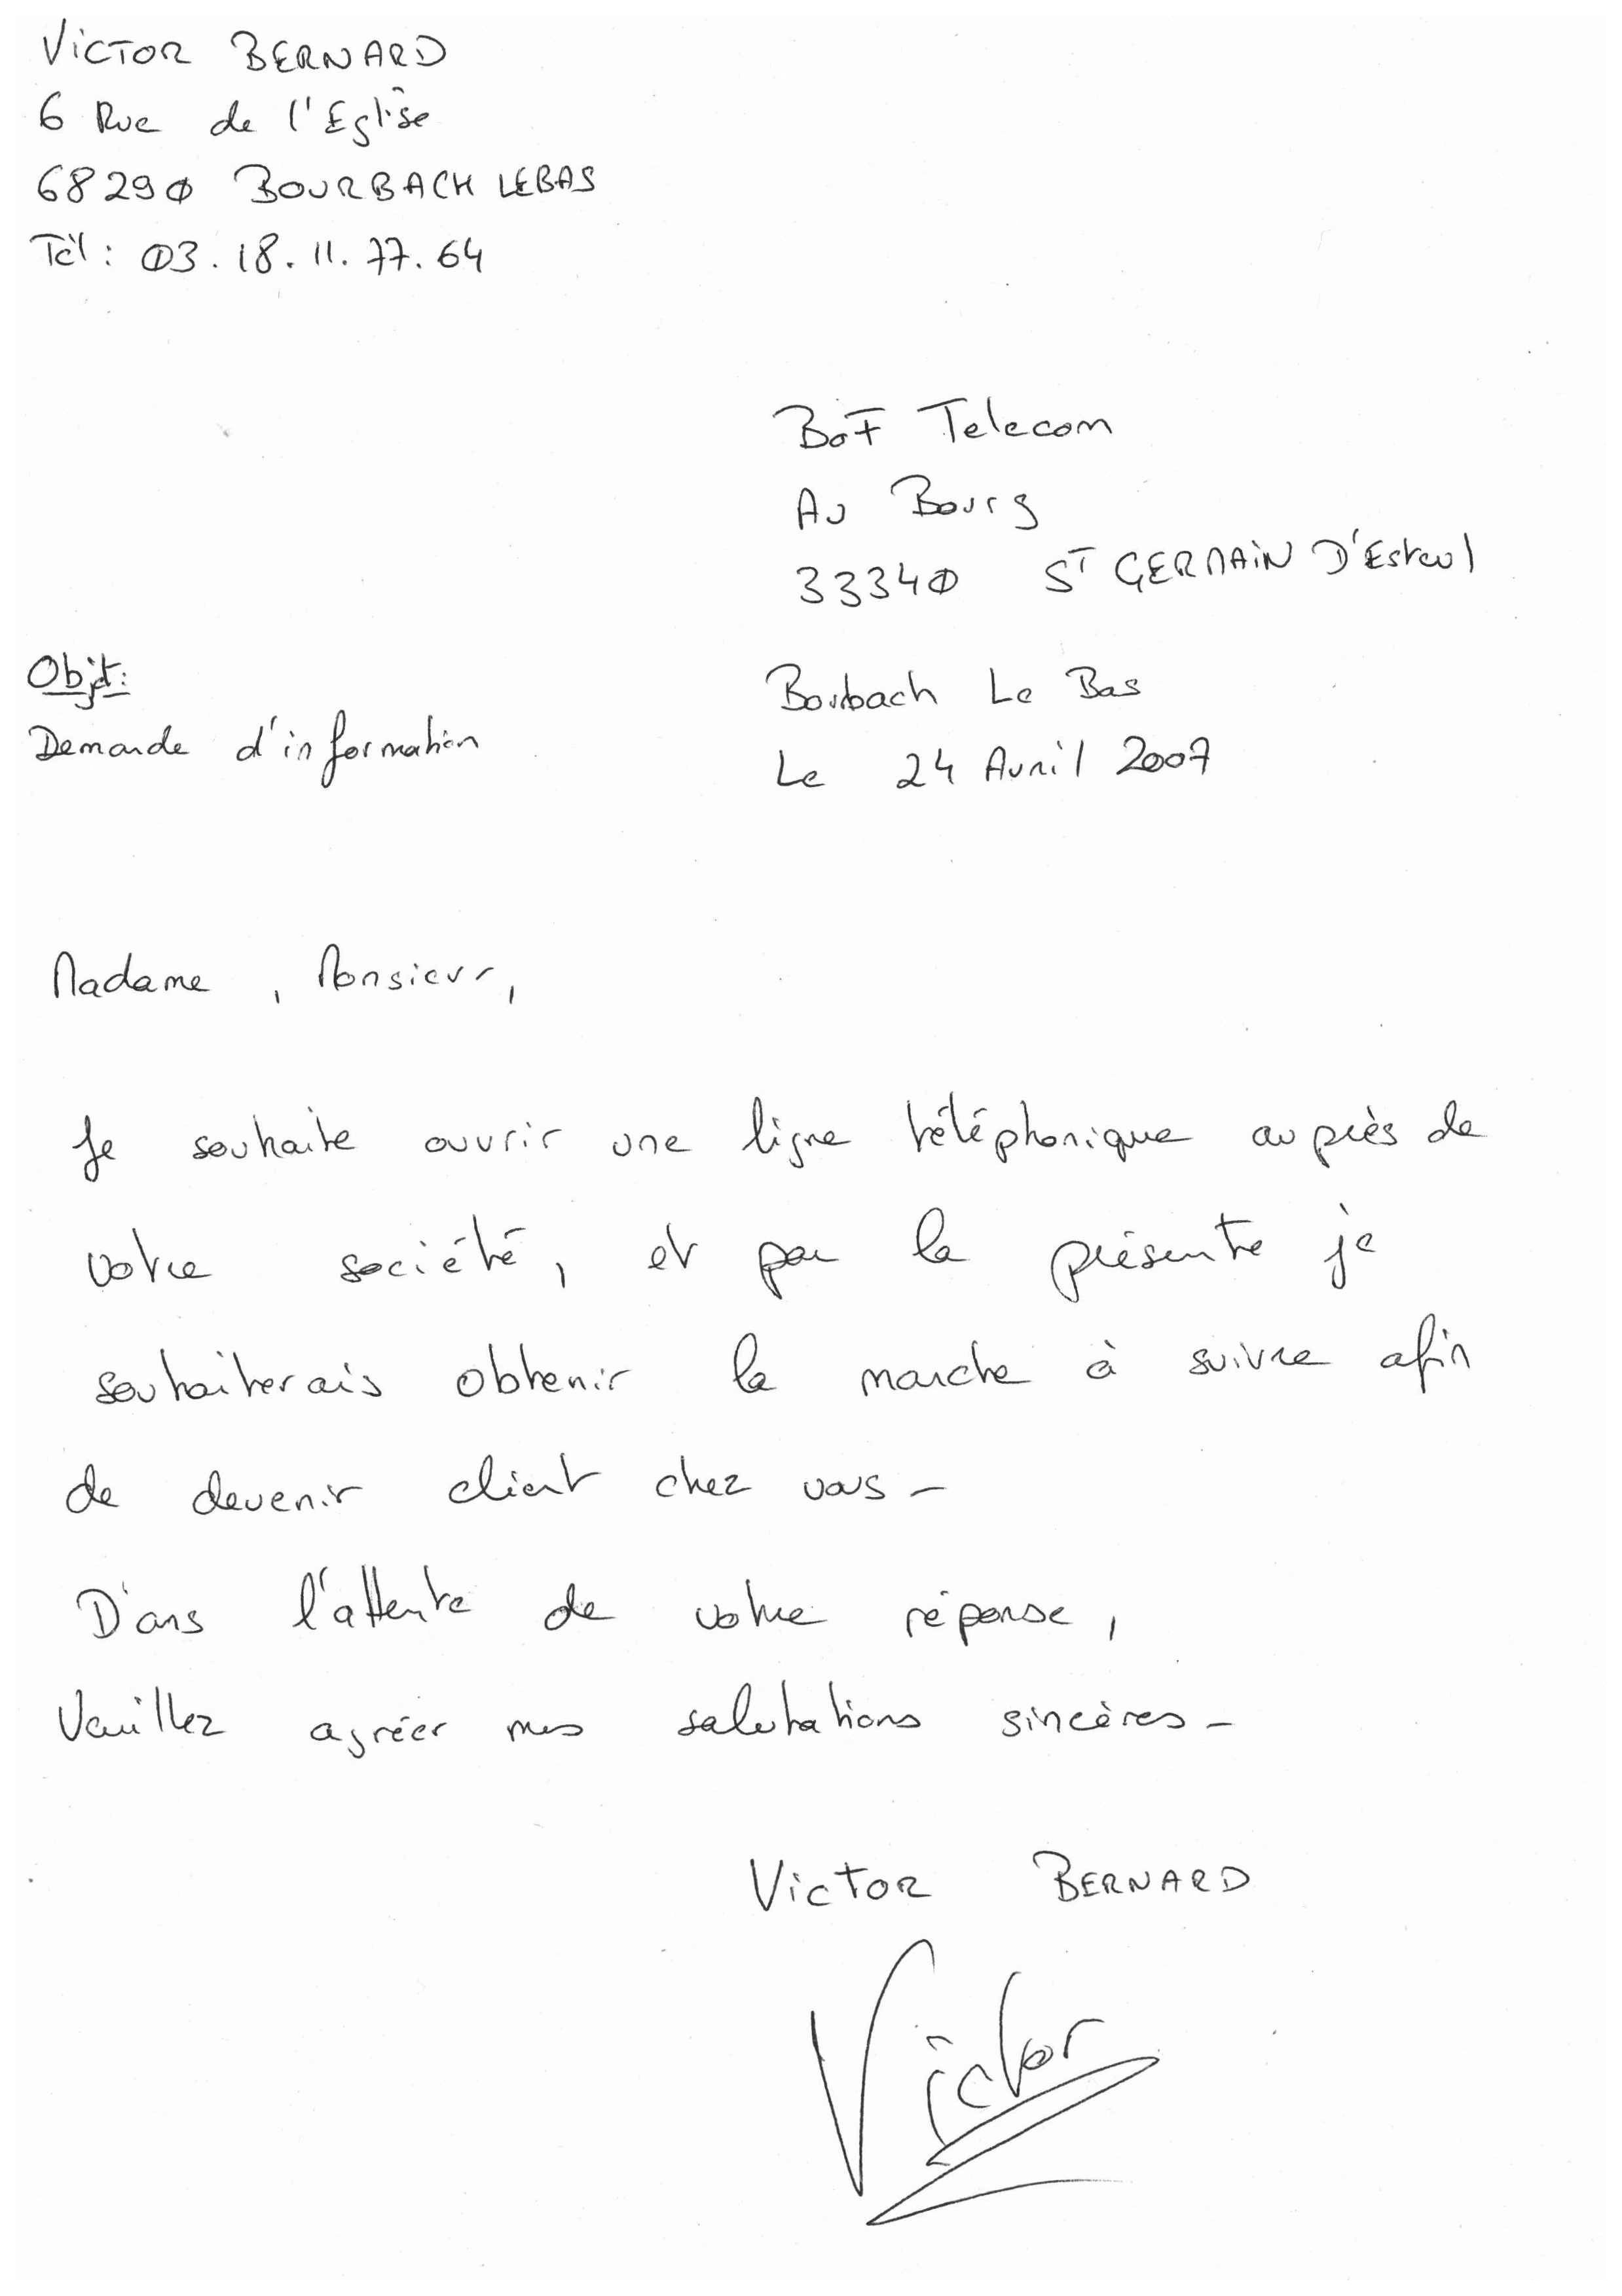 VICTOR BERNARD
6 Rue de l'Eglise
68290 BOURBACH LEBAS
Tél : 03.18.11.77.64
BoF Telecom
Au Bourg
33340 ST GERMAIN D'Esteul
Objet:
Bourbach Le Bas
Demande d'information
Le 24 Avril 2007
Madame, Monsieur,
Je souhaite ouvrir une ligne téléphonique auprès de
votre société, et par la présente je
souhaiterais obtenir la marche à suivre afin
de devenir client chez vous -
Dans l'attente de votre réponse,
Veuillez agréer mes salutations sincères -
Victor BERNARD
Victor